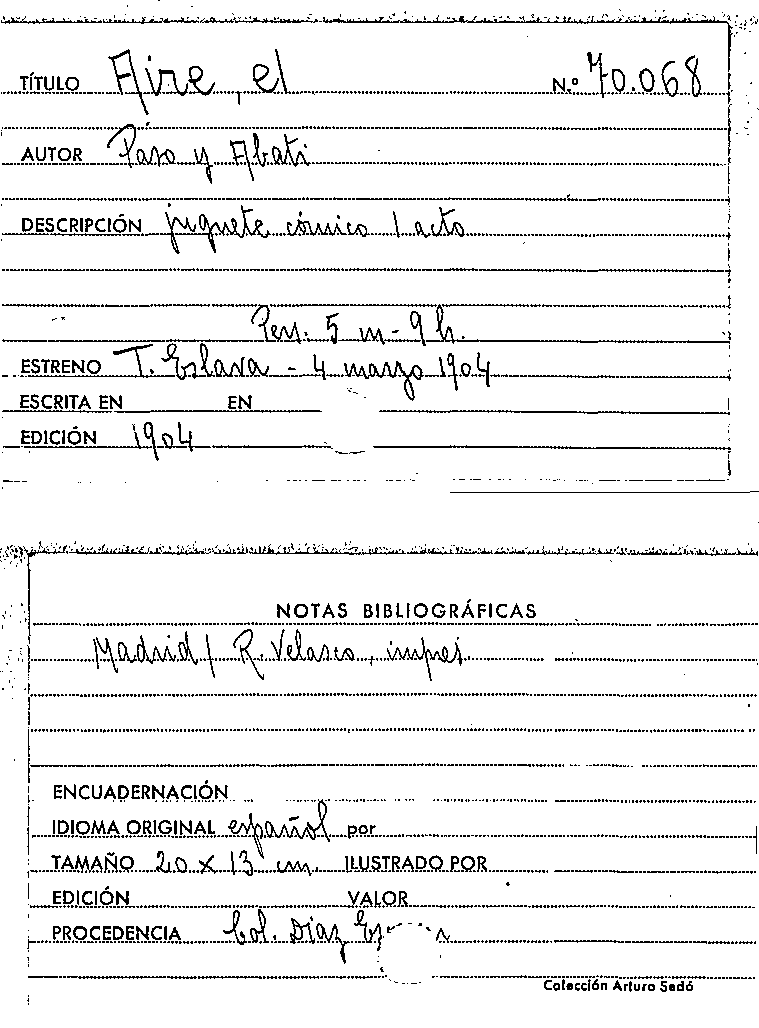 TÍTULO Aire, el N.º 70.068
AUTOR Paso y Abati
DESCRIPCIÓN juguete cómico 1 acto
Pers. 5 m - 9 h.
ESTRENO T. Eslava - 4 marzo 1904
ESCRITA EN EN
EDICIÓN 1904
NOTAS BIBLIOGRÁFICAS
Madrid / R. Velasco, impres.
ENCUADERNACIÓN
IDIOMA ORIGINAL español por
TAMAÑO 20 x 13 cm. ILUSTRADO POR
EDICIÓN VALOR
PROCEDENCIA Col. Díaz
Colección Arturo Sedó